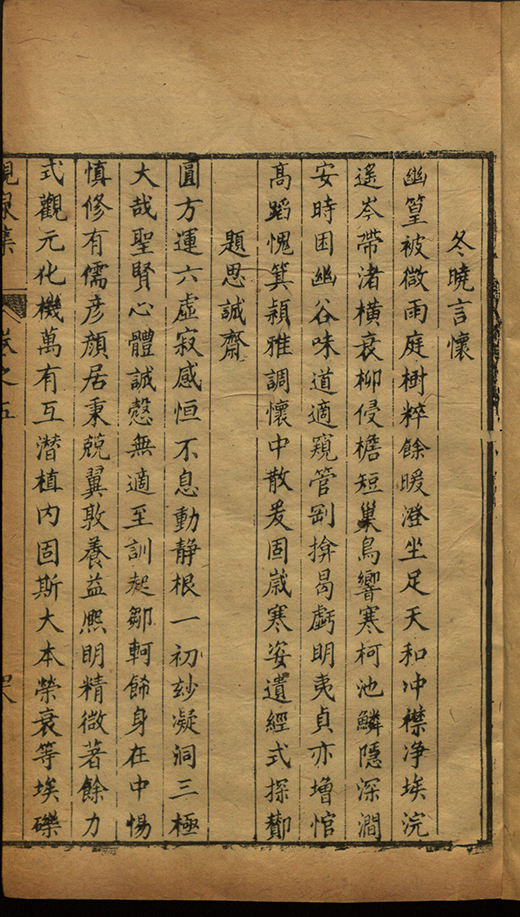 冬曉言懷
幽篁被微雨庭樹粹餘暖澄坐足天和冲襟淨埃浣
遥岑帶渚橫衰柳侵檐短巢鳥響寒柯池鱗隱深澗
安時困幽谷味道適窺管剛揜曷虧明夷貞亦增悺
高蹈愧箕潁雅調懷中散爰固嵗寒姿遺經式探鄼
題思誠齋
圓方運六虛寂感恒不息動靜根一初玅凝洞三極
大哉聖賢心體誠慤無適至訓起鄒軻飾身在中惕
慎修有儒彦顔居秉兢翼敦養益熈明精微著餘力
式觀元化機萬有互潛植内固斯大本榮衰等埃礫
卷之五